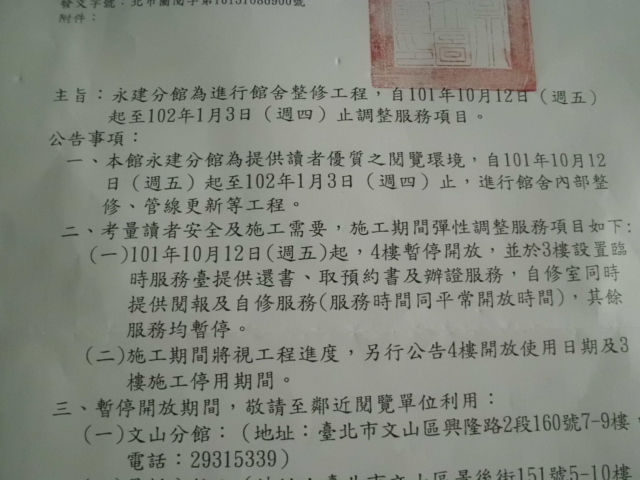 發文字號：北市圖閱字第10131080900號
附件：
主旨：永建分館為進行館舍整修工程，自101年10月12日（週五）
起至102年1月3日（週四）止調整服務項目。
公告事項：
一、本館永建分館為提供讀者優質之閱覽環境，自101年10月12
日（週五）起至102年1月3日（週四）止，進行館舍內部整
修、管線更新等工程。
二、考量讀者安全及施工需要，施工期間彈性調整服務項目如下:
(一)101年10月12日(週五)起，4樓暫停開放，並於3樓設置臨
時服務臺提供還書、取預約書及辦證服務，自修室同時
提供閱報及自修服務(服務時間同平常開放時間)，其餘
服務均暫停。
(二)施工期間將視工程進度，另行公告4樓開放使用日期及3
樓施工停用期間。
三、暫停開放期間，敬請至鄰近閱覽單位利用：
(一)文山分館：（地址：臺北市文山區興隆路2段160號7-9樓
電話：29315339）
景後街151號5-10樓